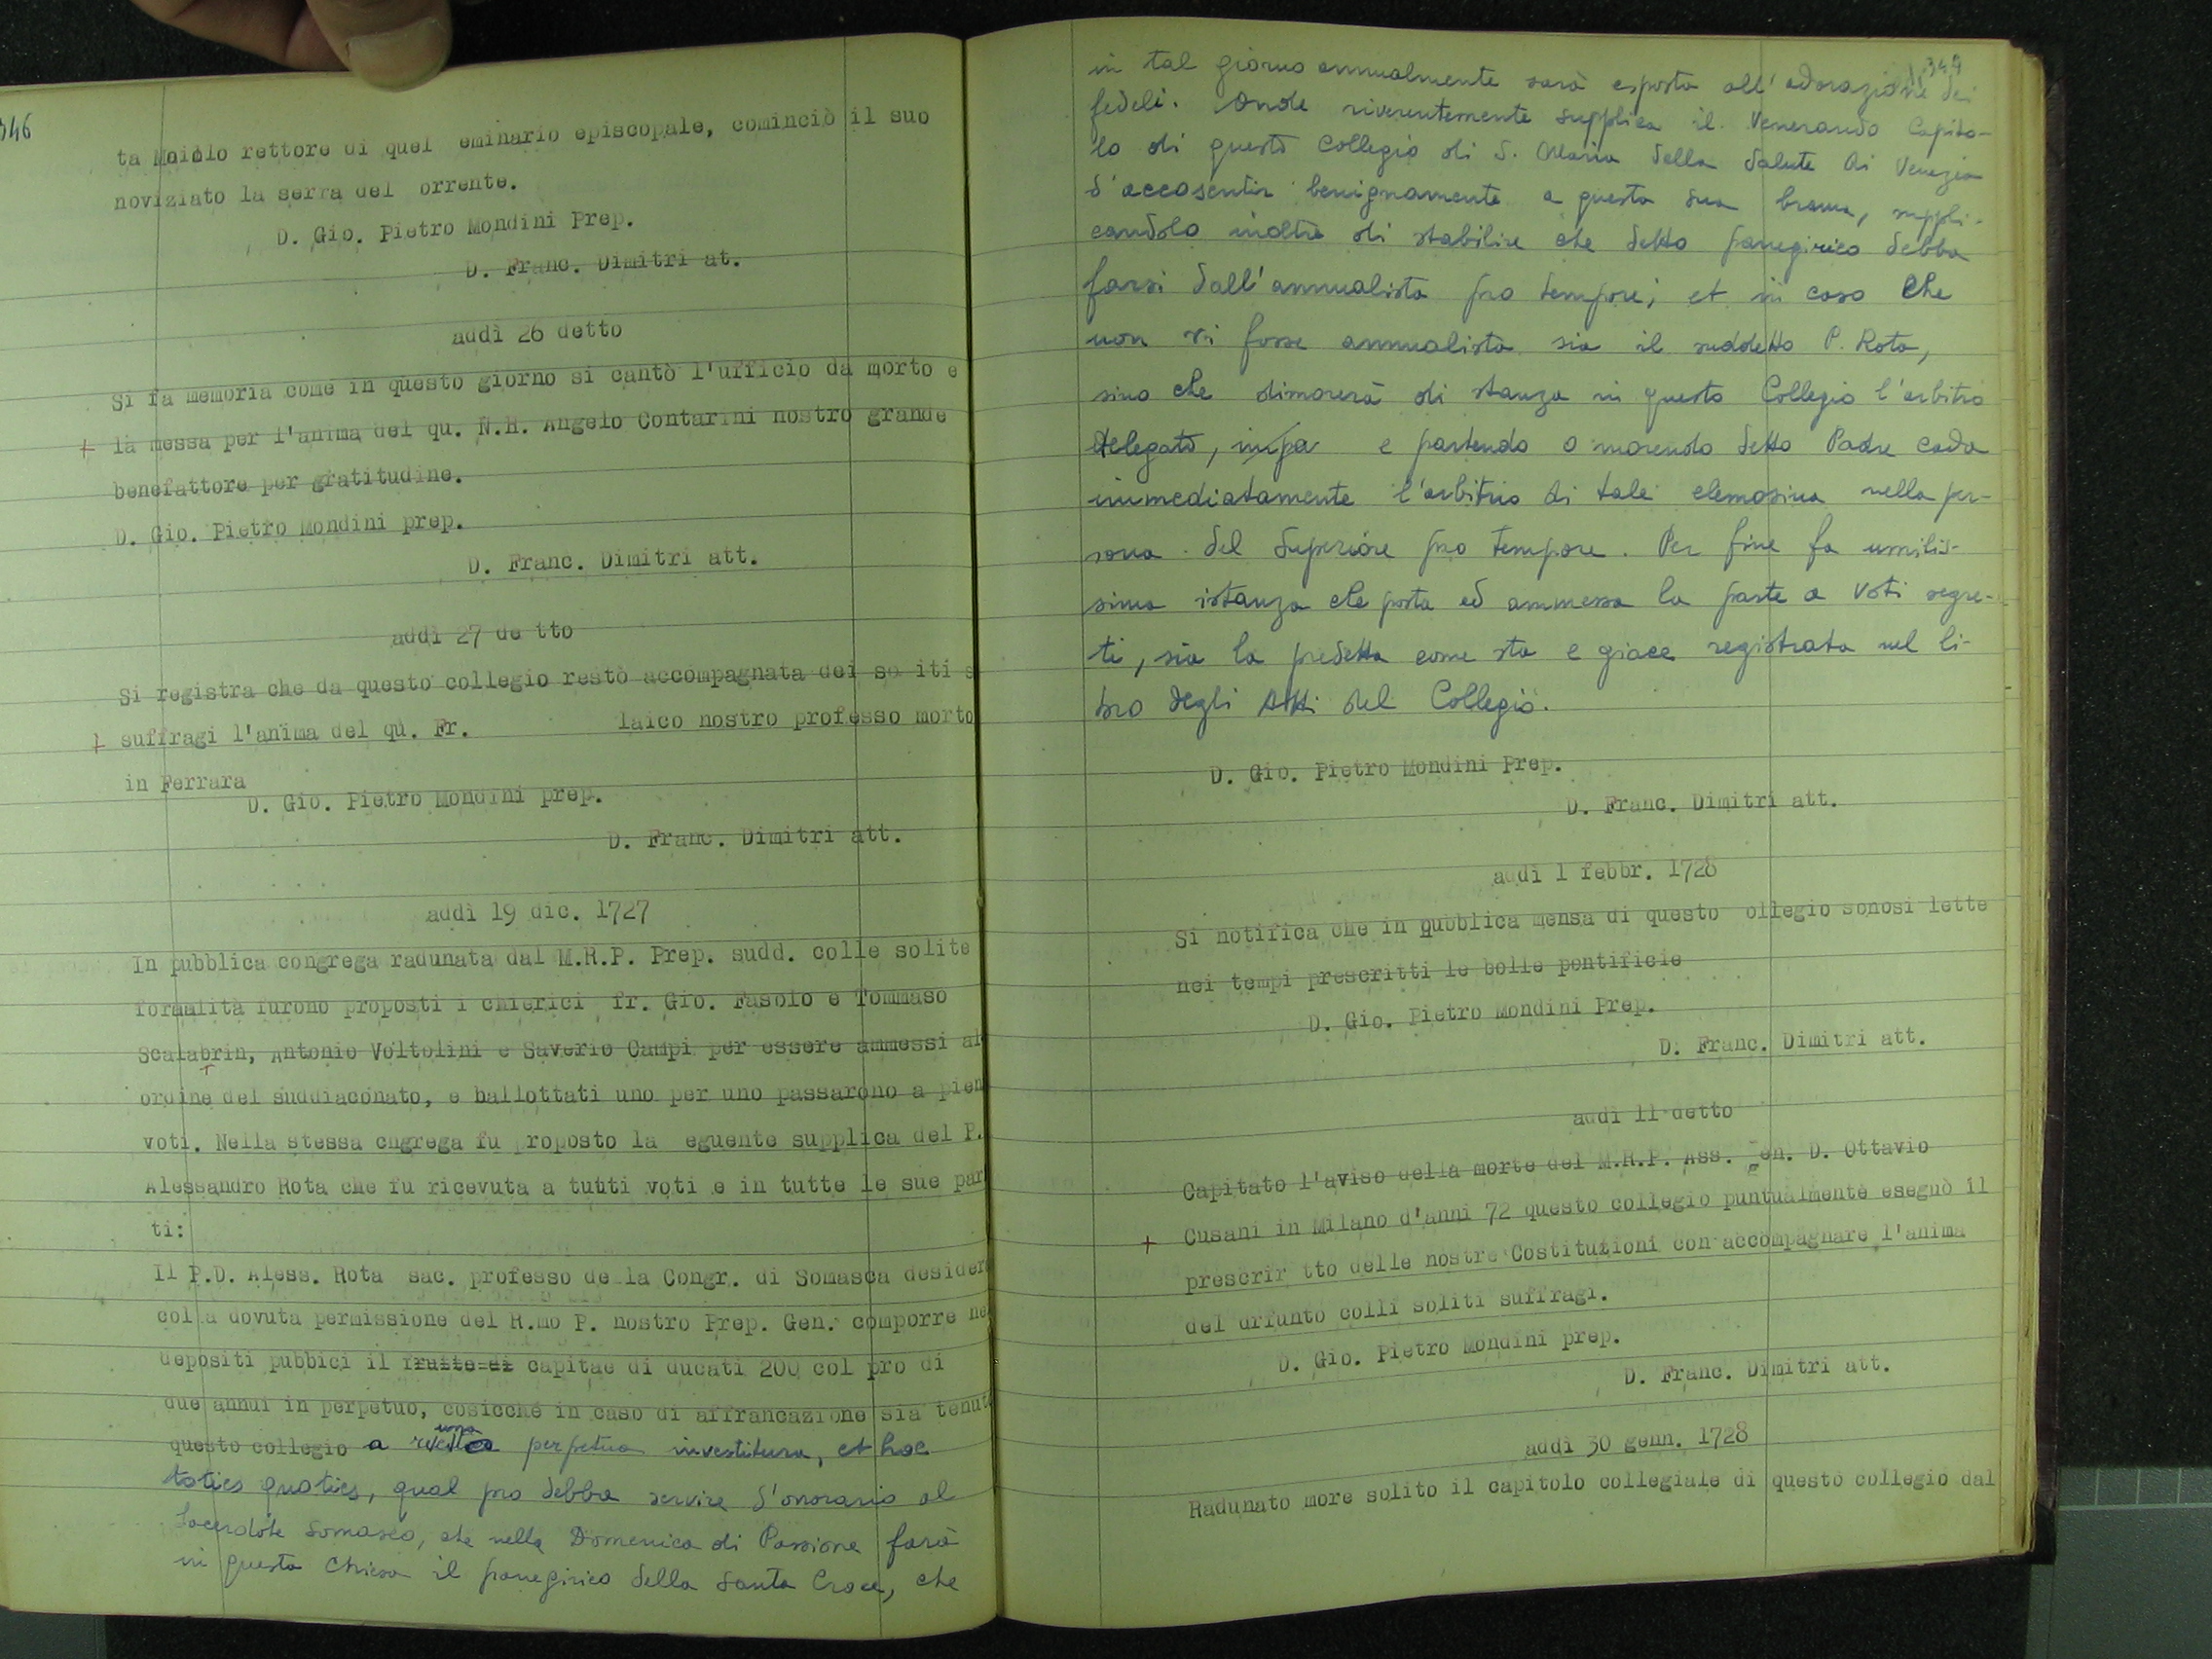 346
ta Maiolo rettore di quel eminario episcopale, cominciò il suo
noviziato la serra del orrente.
D. Gio. Pietro Mondini Prep.
D. Franc. Dimitri at.
addì 26 detto
Si fa memoria come in questo giorno si cantò l'ufficio da morto e
+ la messa per l'anima del qu. N.H. Angelo Contarini nostro grande
benefattore per gratitudine.
D. Gio. Pietro Mondini prep.
D. Franc. Dimitri att.
addì 27 de tto
Si registra che da questo collegio restò accompagnata dei so iti s
+ suffragi l'anima del qu. Fr. laico nostro professo morto
in Ferrara
D. Gio. Pietro Mondini prep.
D. Franc. Dimitri att.
addì 19 dic. 1727
In pubblica congrega radunata dal M.R.P. Prep. sudd. colle solite
formalità furono proposti i chierici fr. Gio. Fasolo e Tommaso
Scalabrin, Antonio Voltolini e Saverio Campi per essere ammessi al
ordine del suddiaconato, e ballottati uno per uno passarono a pien
voti. Nella stessa cngrega fu roposto la eguente supplica del P.
Alessandro Rota che fu ricevuta a tutti voti e in tutte le sue par
ti:
Il P.D. Aless. Rota sac. professo de la Congr. di Somasca desider
col a dovuta permissione del R.mo P. nostro Prep. Gen. comporre ne
depositi pubbici il fruito di capitae di ducati 200 col pro di
due annui in perpetuo, cosicché in caso di affrancazione sia tenut
questo collegio a una perpetua investitura, et hoc
toties quoties, qual pro debba servire d'onorario al
Sacerdote Somasco, che nella Domenica di Passione farà
in questa Chiesa il panegirico della Santa Croce, che
349
in tal giorno annualmente sarà esposta all'adorazione dei
fedeli. Onde riverentemente supplica il Venerando Capito-
lo di questo Collegio di S. Maria della Salute di Venezia
d'accosentir benignamente a questa sua brama, suppli-
candolo inoltre di stabilire che detto panegirico debba
farsi dall'annualista pro tempore; et in caso che
non vi fosse annualista sia il suddetto P. Rota,
sino che dimorerà di stanza in questo Collegio l'arbitro
delegato, inpa e partendo o morendo detto Padre cada
immediatamente l'arbitrio di tale elemosina nella per-
sona del Superiore pro tempore. Per fine fa umilis-
sima istanza che posta ed ammessa la parte a voti segre-
ti, sia la predetta come sta e giace registrata nel li-
bro degli Atti del Collegio.
D. Gio. Pietro Mondini Prep.
D. Franc. Dimitri att.
addì 1 febbr. 1728
Si notifica che in pubblica mensa di questo ollegio sonosi lette
nei tempi prescritti le bolle pontificie
D. Gio. Pietro Mondini Prep.
D. Franc. Dimitri att.
addì 11 detto
Capitato l'aviso della morte del M.R.P. Ass. Gen. D. Ottavio
+ Cusani in Milano d'anni 72 questo collegio puntualmente esegnò il
prescrir tto delle nostre Costituzioni con accompagnare l'anima
del drfunto colli soliti suffragi.
D. Gio. Pietro Mondini prep.
D. Franc. Dimitri att.
addì 30 genn. 1728
Radunato more solito il capitolo collegiale di questo collegio dal